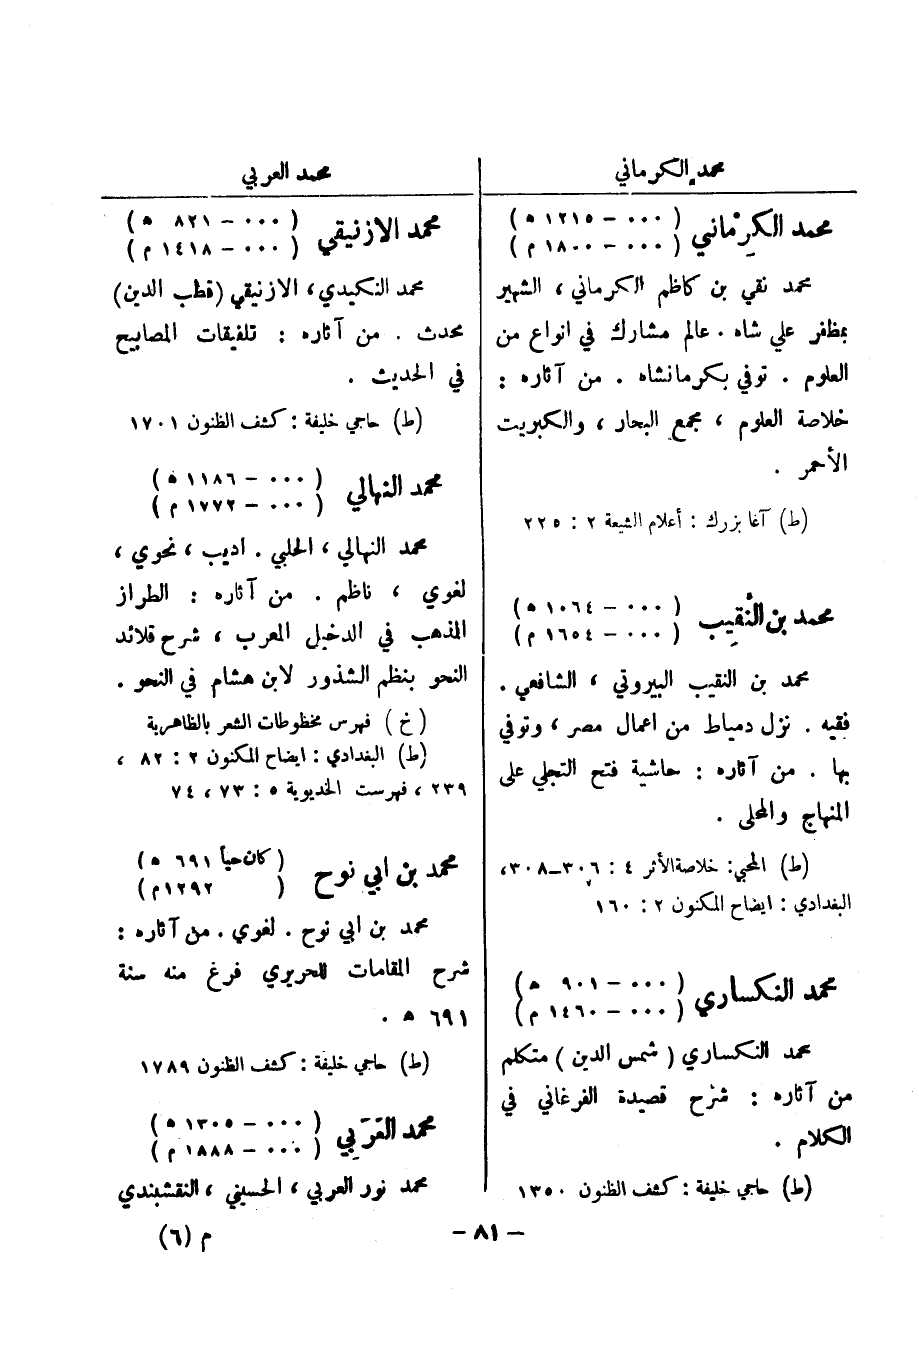 محمد الكرماني
محمد الكرماني ( ٠٠٠ – ١٢١٥ ه )
( ٠٠٠ – ١٨٠٠ م )
محمد نقي بن كاظم الكرماني ، الشهير
بمظفر علي شاه . عالم مشارك في انواع من
العلوم . توفي بكرمانشاه . من آثاره :
خلاصة العلوم ، مجمع البحار ، والكبريت
الأحمر .
(ط) آغا بزرك : أعلام الشيعة ٢ : ٢٢٥
محمد بن النقيب ( ٠٠٠ – ١٠٦٤ ه )
( ٠٠٠ – ١٦٥٤ م )
محمد بن النقيب البيروتي ، الشافعي .
فقيه . نزل دمياط من اعمال مصر ، وتوفي
بها . من آثاره : حاشية فتح التجلي على
المنهاج والمحلى .
(ط) المحبي: خلاصة الأثر ٤ : ٣٠٦–٣٠٨،
البغدادي : ايضاح المكنون ٢ : ١٦٠
محمد النكساري ( ٠٠٠ – ٩٠١ ه )
( ٠٠٠ – ١٤٦٠ م )
محمد النكساري ( شمس الدين ) متكلم
من آثاره : شرح قصيدة الفرغاني في
الكلام .
(ط) حاجي خليفة : كشف الظنون ١٣٥٠
محمد العربي
محمد الازنيقي ( ٠٠٠ – ٨٢١ ه )
( ٠٠٠ – ١٤١٨ م )
محمد النكيدي ، الازنيقي (قطب الدين)
محدث . من آثاره : تلفيقات المصابيح
في الحديث .
(ط) حاجي خليفة : كشف الظنون ١٧٠١
محمد النهالي ( ٠٠٠ – ١١٨٦ ه )
( ٠٠٠ – ١٧٧٢ م )
محمد النهالي ، الحلبي . اديب ، نحوي ،
لغوي ، ناظم . من آثاره : الطراز
المذهب في الدخيل المعرب ، شرح قلائد
النحو بنظم الشذور لابن هشام في النحو .
( خ ) فهرس مخطوطات الشعر بالظاهرية
(ط) البغدادي : ايضاح المكنون ٢ : ٨٢ ،
٢٣٩ ، فهرست الخديوية ٥ : ٧٣ ، ٧٤
محمد بن ابي نوح ( كان حياً ٦٩١ ه )
( ١٢٩٢م )
محمد بن ابي نوح . لغوي . من آثاره :
شرح المقامات للحريري فرغ منه سنة
٦٩١ ه .
(ط) حاجي خليفة : كشف الظنون ١٧٨٩
محمد العَرَبي ( ٠٠٠ – ١٣٠٥ ه )
( ٠٠٠ – ١٨٨٨ م )
محمد نور العربي ، الحسيني ، النقشبندي
– ٨١ –
م (٦)